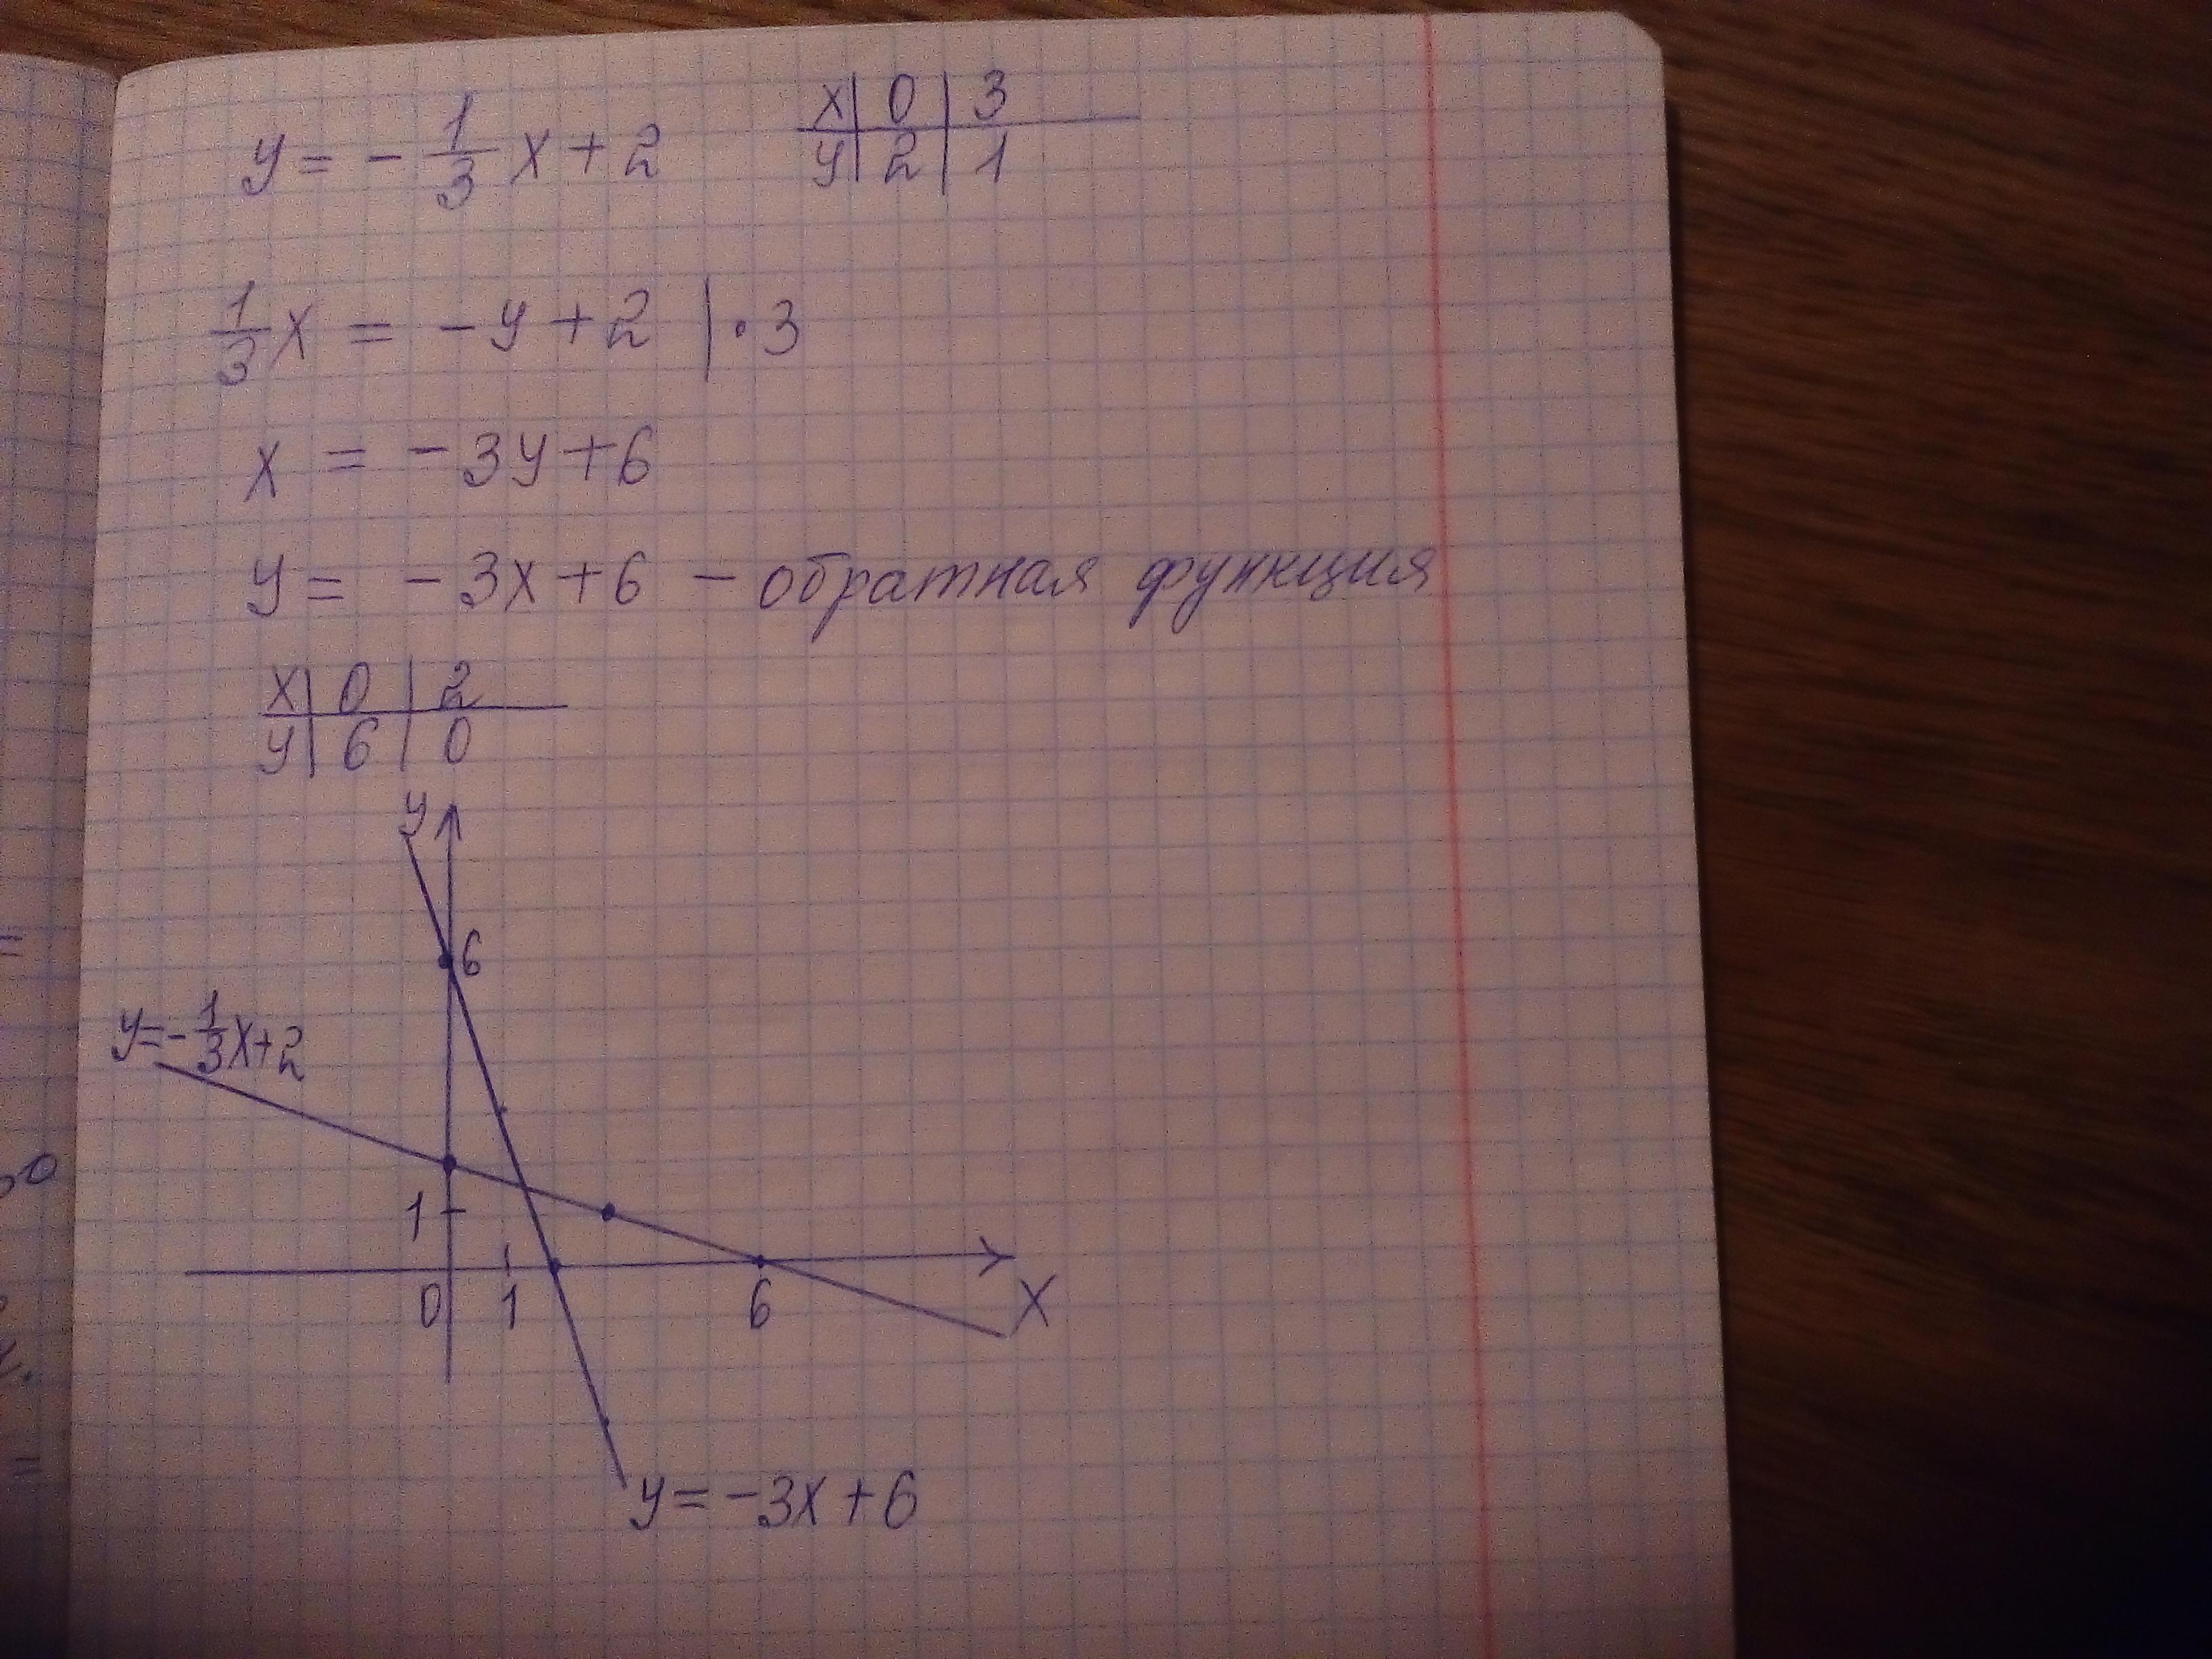 y = - 1/3 x + 2
x | 0 | 3
y | 2 | 1
1/3 x = - y + 2 | · 3
x = - 3y + 6
y = - 3x + 6 - обратная функция
x | 0 | 2
y | 6 | 0
y
6
y = - 1/3 x + 2
1
0 1 6 X
y = - 3x + 6